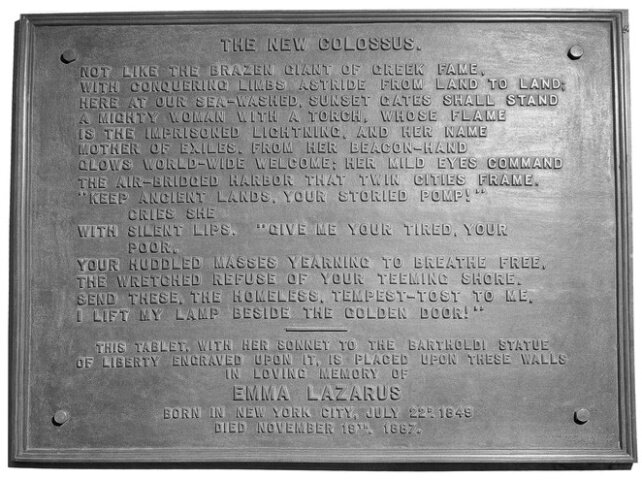 THE NEW COLOSSUS.
NOT LIKE THE BRAZEN GIANT OF GREEK FAME,
WITH CONQUERING LIMBS ASTRIDE FROM LAND TO LAND;
HERE AT OUR SEA-WASHED, SUNSET GATES SHALL STAND
A MIGHTY WOMAN WITH A TORCH, WHOSE FLAME
IS THE IMPRISONED LIGHTNING, AND HER NAME
MOTHER OF EXILES. FROM HER BEACON-HAND
GLOWS WORLD-WIDE WELCOME; HER MILD EYES COMMAND
THE AIR-BRIDGED HARBOR THAT TWIN CITIES FRAME.
"KEEP ANCIENT LANDS, YOUR STORIED POMP!"
CRIES SHE
WITH SILENT LIPS. "GIVE ME YOUR TIRED, YOUR
POOR,
YOUR HUDDLED MASSES YEARNING TO BREATHE FREE,
THE WRETCHED REFUSE OF YOUR TEEMING SHORE.
SEND THESE, THE HOMELESS, TEMPEST-TOST TO ME,
I LIFT MY LAMP BESIDE THE GOLDEN DOOR!"
THIS TABLET, WITH HER SONNET TO THE BARTHOLDI STATUE
OF LIBERTY ENGRAVED UPON IT, IS PLACED UPON THESE WALLS
IN LOVING MEMORY OF
EMMA LAZARUS
BORN IN NEW YORK CITY, JULY 22D. 1849
DIED NOVEMBER 19TH. 1887.